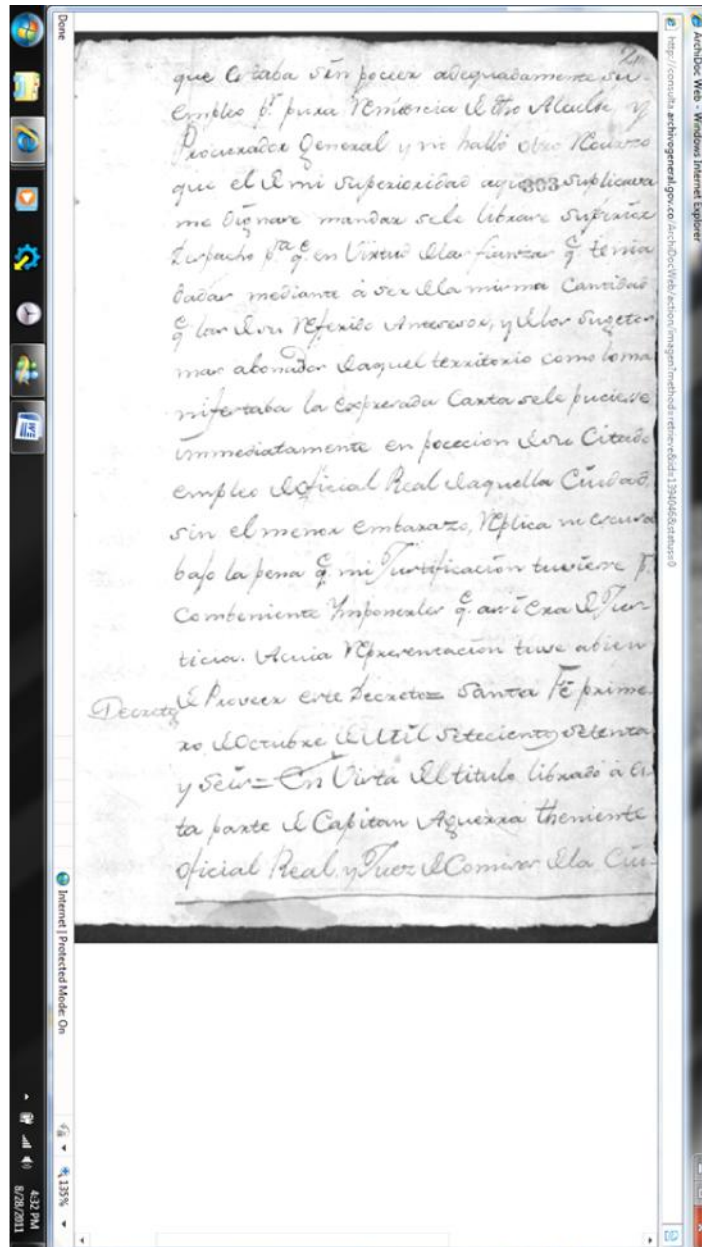 ArchiDoc Web - Windows Internet Explorer
http://consulta.archivogeneral.gov.co/ArchiDocWeb/action/imagen?method=retrieve&id=1394046&status=0
2
que estaba sin poceer adequadamente su
empleo pr. pura Renitencia de dho Alcalde y
Procurador General y no halló otro Recurso
que el de mi Superioridad aque suplicava
303
me dignare mandar sele librare Superior
Despacho pa. q. en Virtud dela fianzar q. tenia
dadar mediante à ser dela misma Cantidad
q. lar de su Referido Antesesor, y delor Sugetor
mar abonador daquel territorio como loma
nifestaba la expresada Carta sele puciese
immediatamente en pocecion de su Citado
empleo de oficial Real daquella Ciudad,
sin el menor embarazo, Replica ni escusa
bajo la pena q. mi Justificacion tuviese p.
Combeniente Ymponerler q. asi era de Jus-
ticia. Acuia Representacion tuve abien
Decreto
de Proveer este Decreto= Santa Fe prime
ro de Octubre de Mil setecientos setenta
y Seis= En Vista del titulo librado à es
ta parte de Capitan Aguerra theniente
oficial Real y Juez de Comisos dela Ciu-
Done
Internet | Protected Mode: On
135%
4:32 PM
8/28/2011